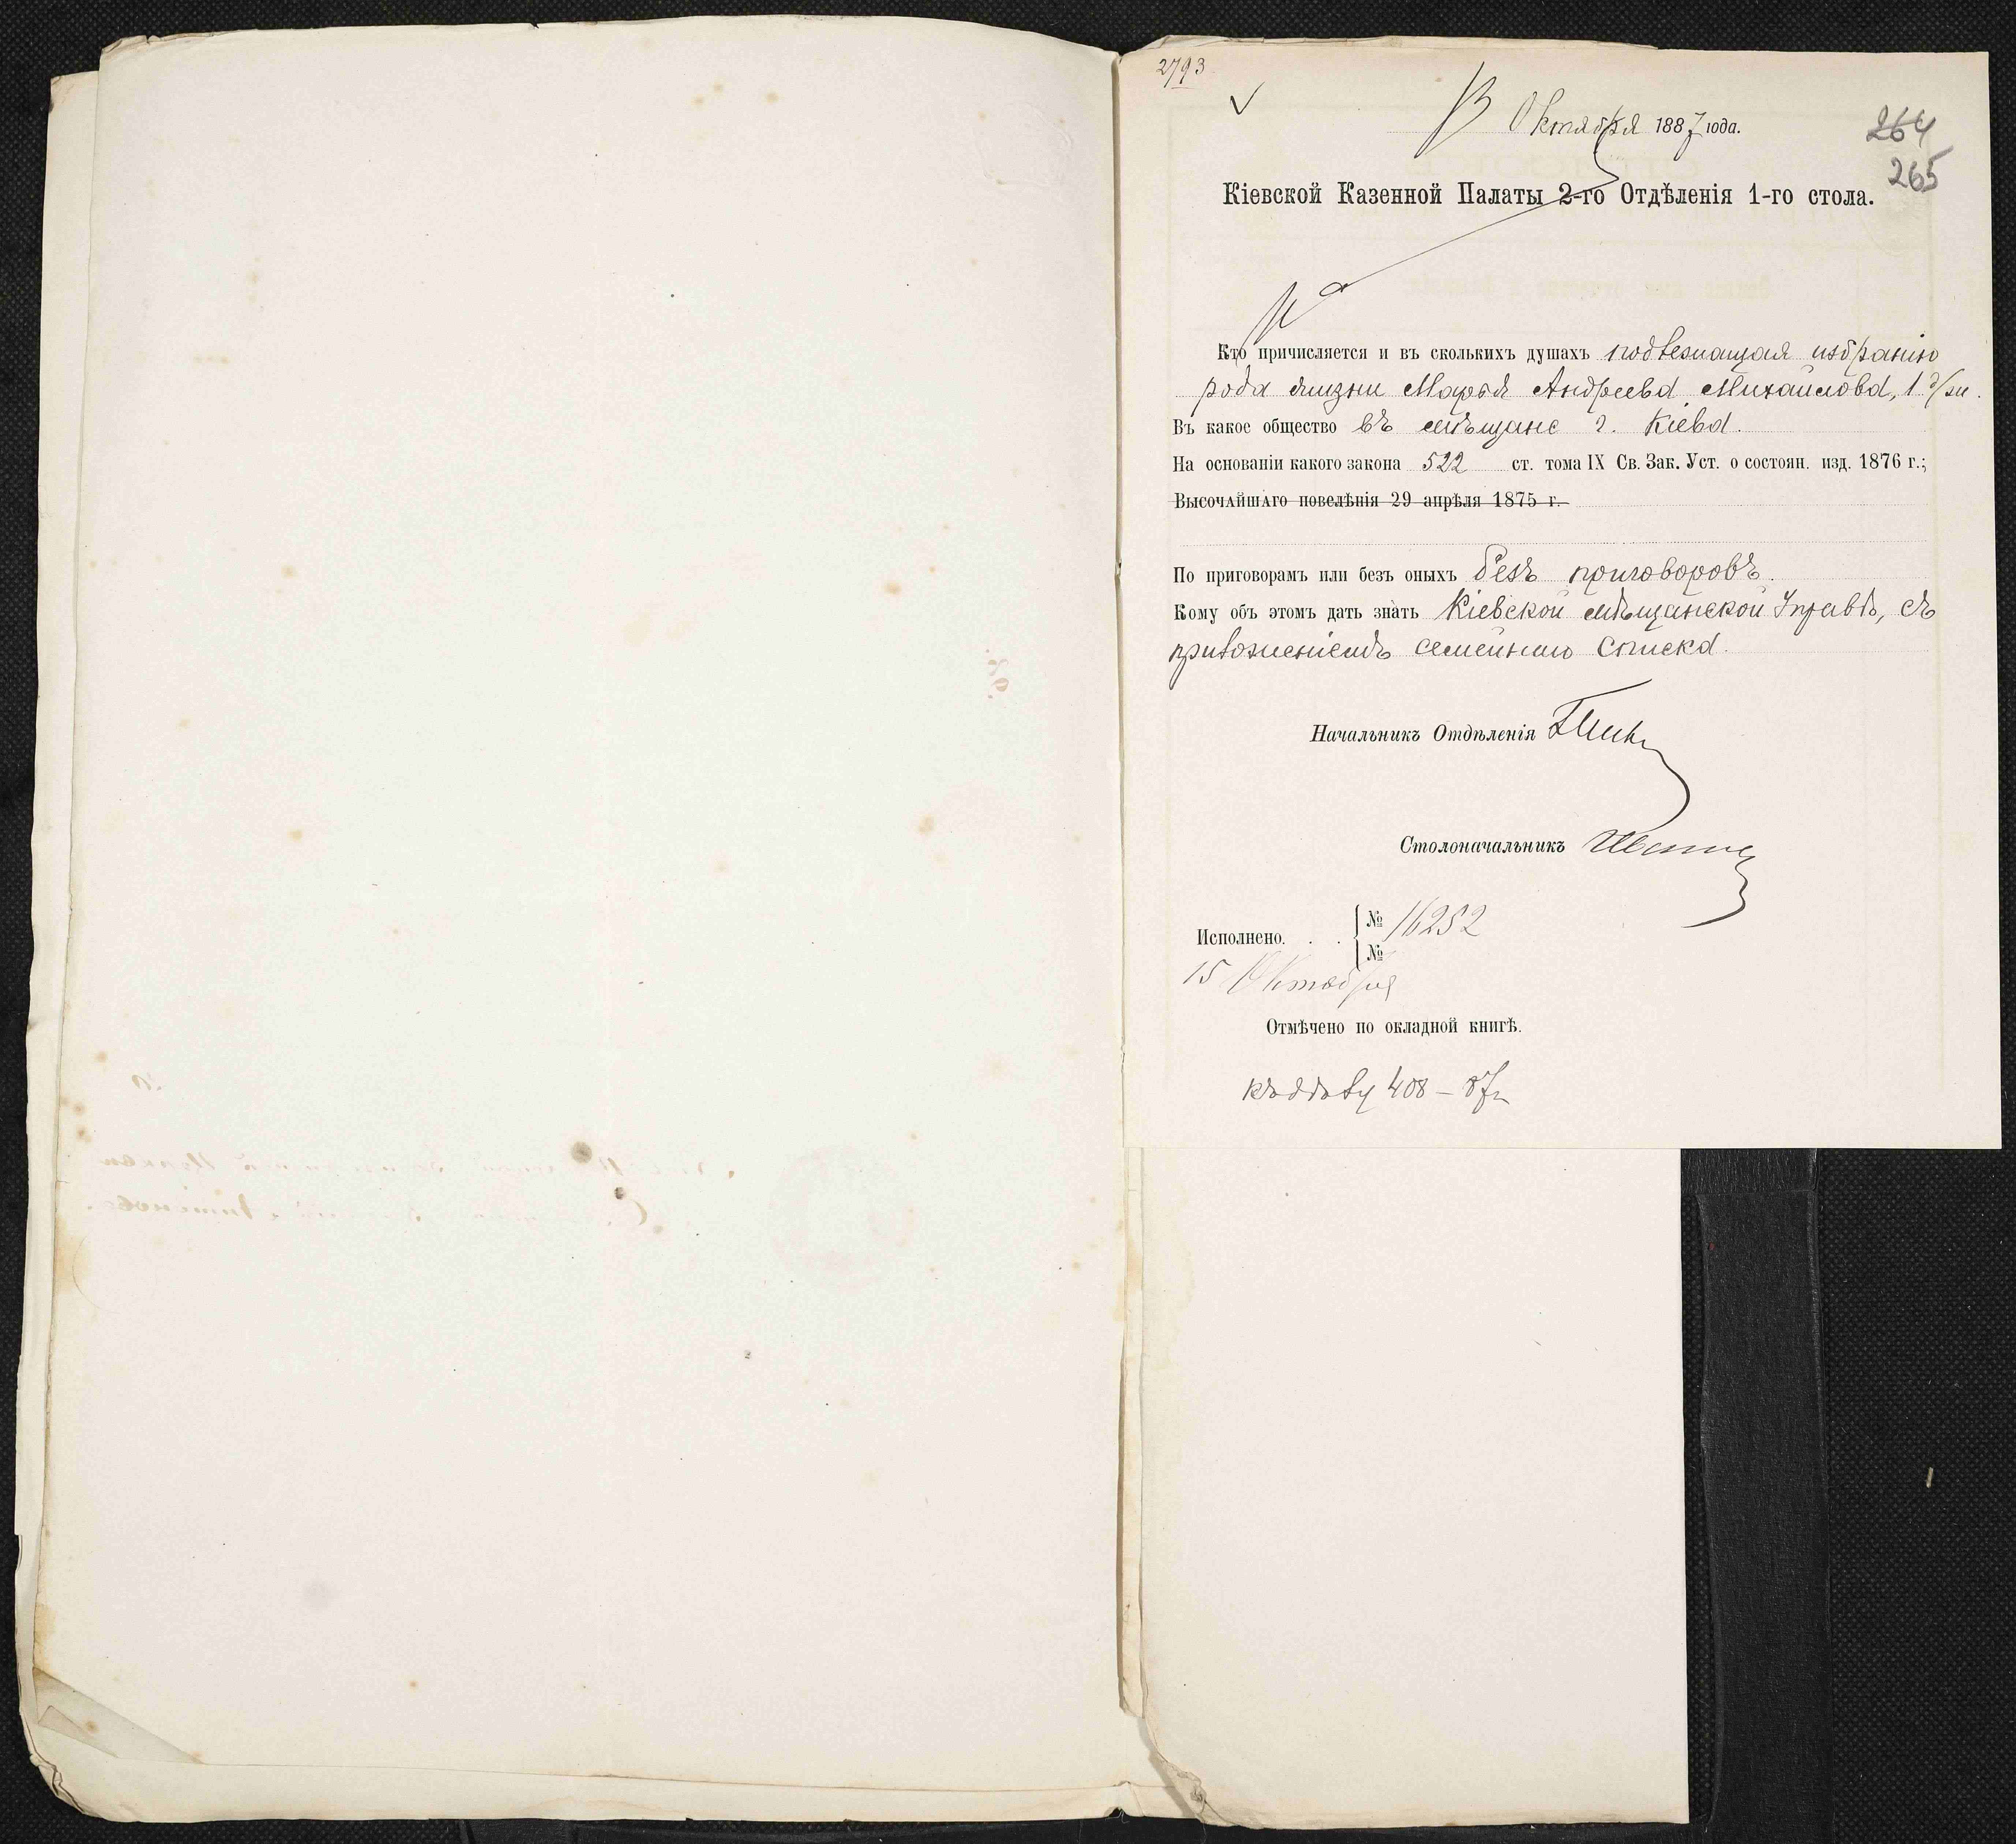 2793
13 Октября 1887 года.
264
265
Кіевской Казенной Палаты 2-го Отдѣленія 1-го стола.
Кто причисляется и въ сколькихъ душахъ подлежащая избранію
рода жизни Марья Андреева Михайлова, 1 д/ж.
Въ какое общество въ мѣщане г. Кіева.
На основаніи какого закона 522 ст. тома IX Св. Зак. Уст. о состоян. изд. 1876 г.;
Высочайшаго повелѣнія 29 апрѣля 1875 г.
По приговорамъ или безъ оныхъ безъ приговоровъ.
Кому объ этомъ дать знать Кіевской мѣщанской Управѣ, съ
приложеніемъ семейнаго списка.
Начальникъ Отдѣленія
Столоначальникъ
Исполнено. . . № 16252
№
15 Октября
Отмѣчено по окладной книгѣ.
къ дѣлу 408 – 87 г.